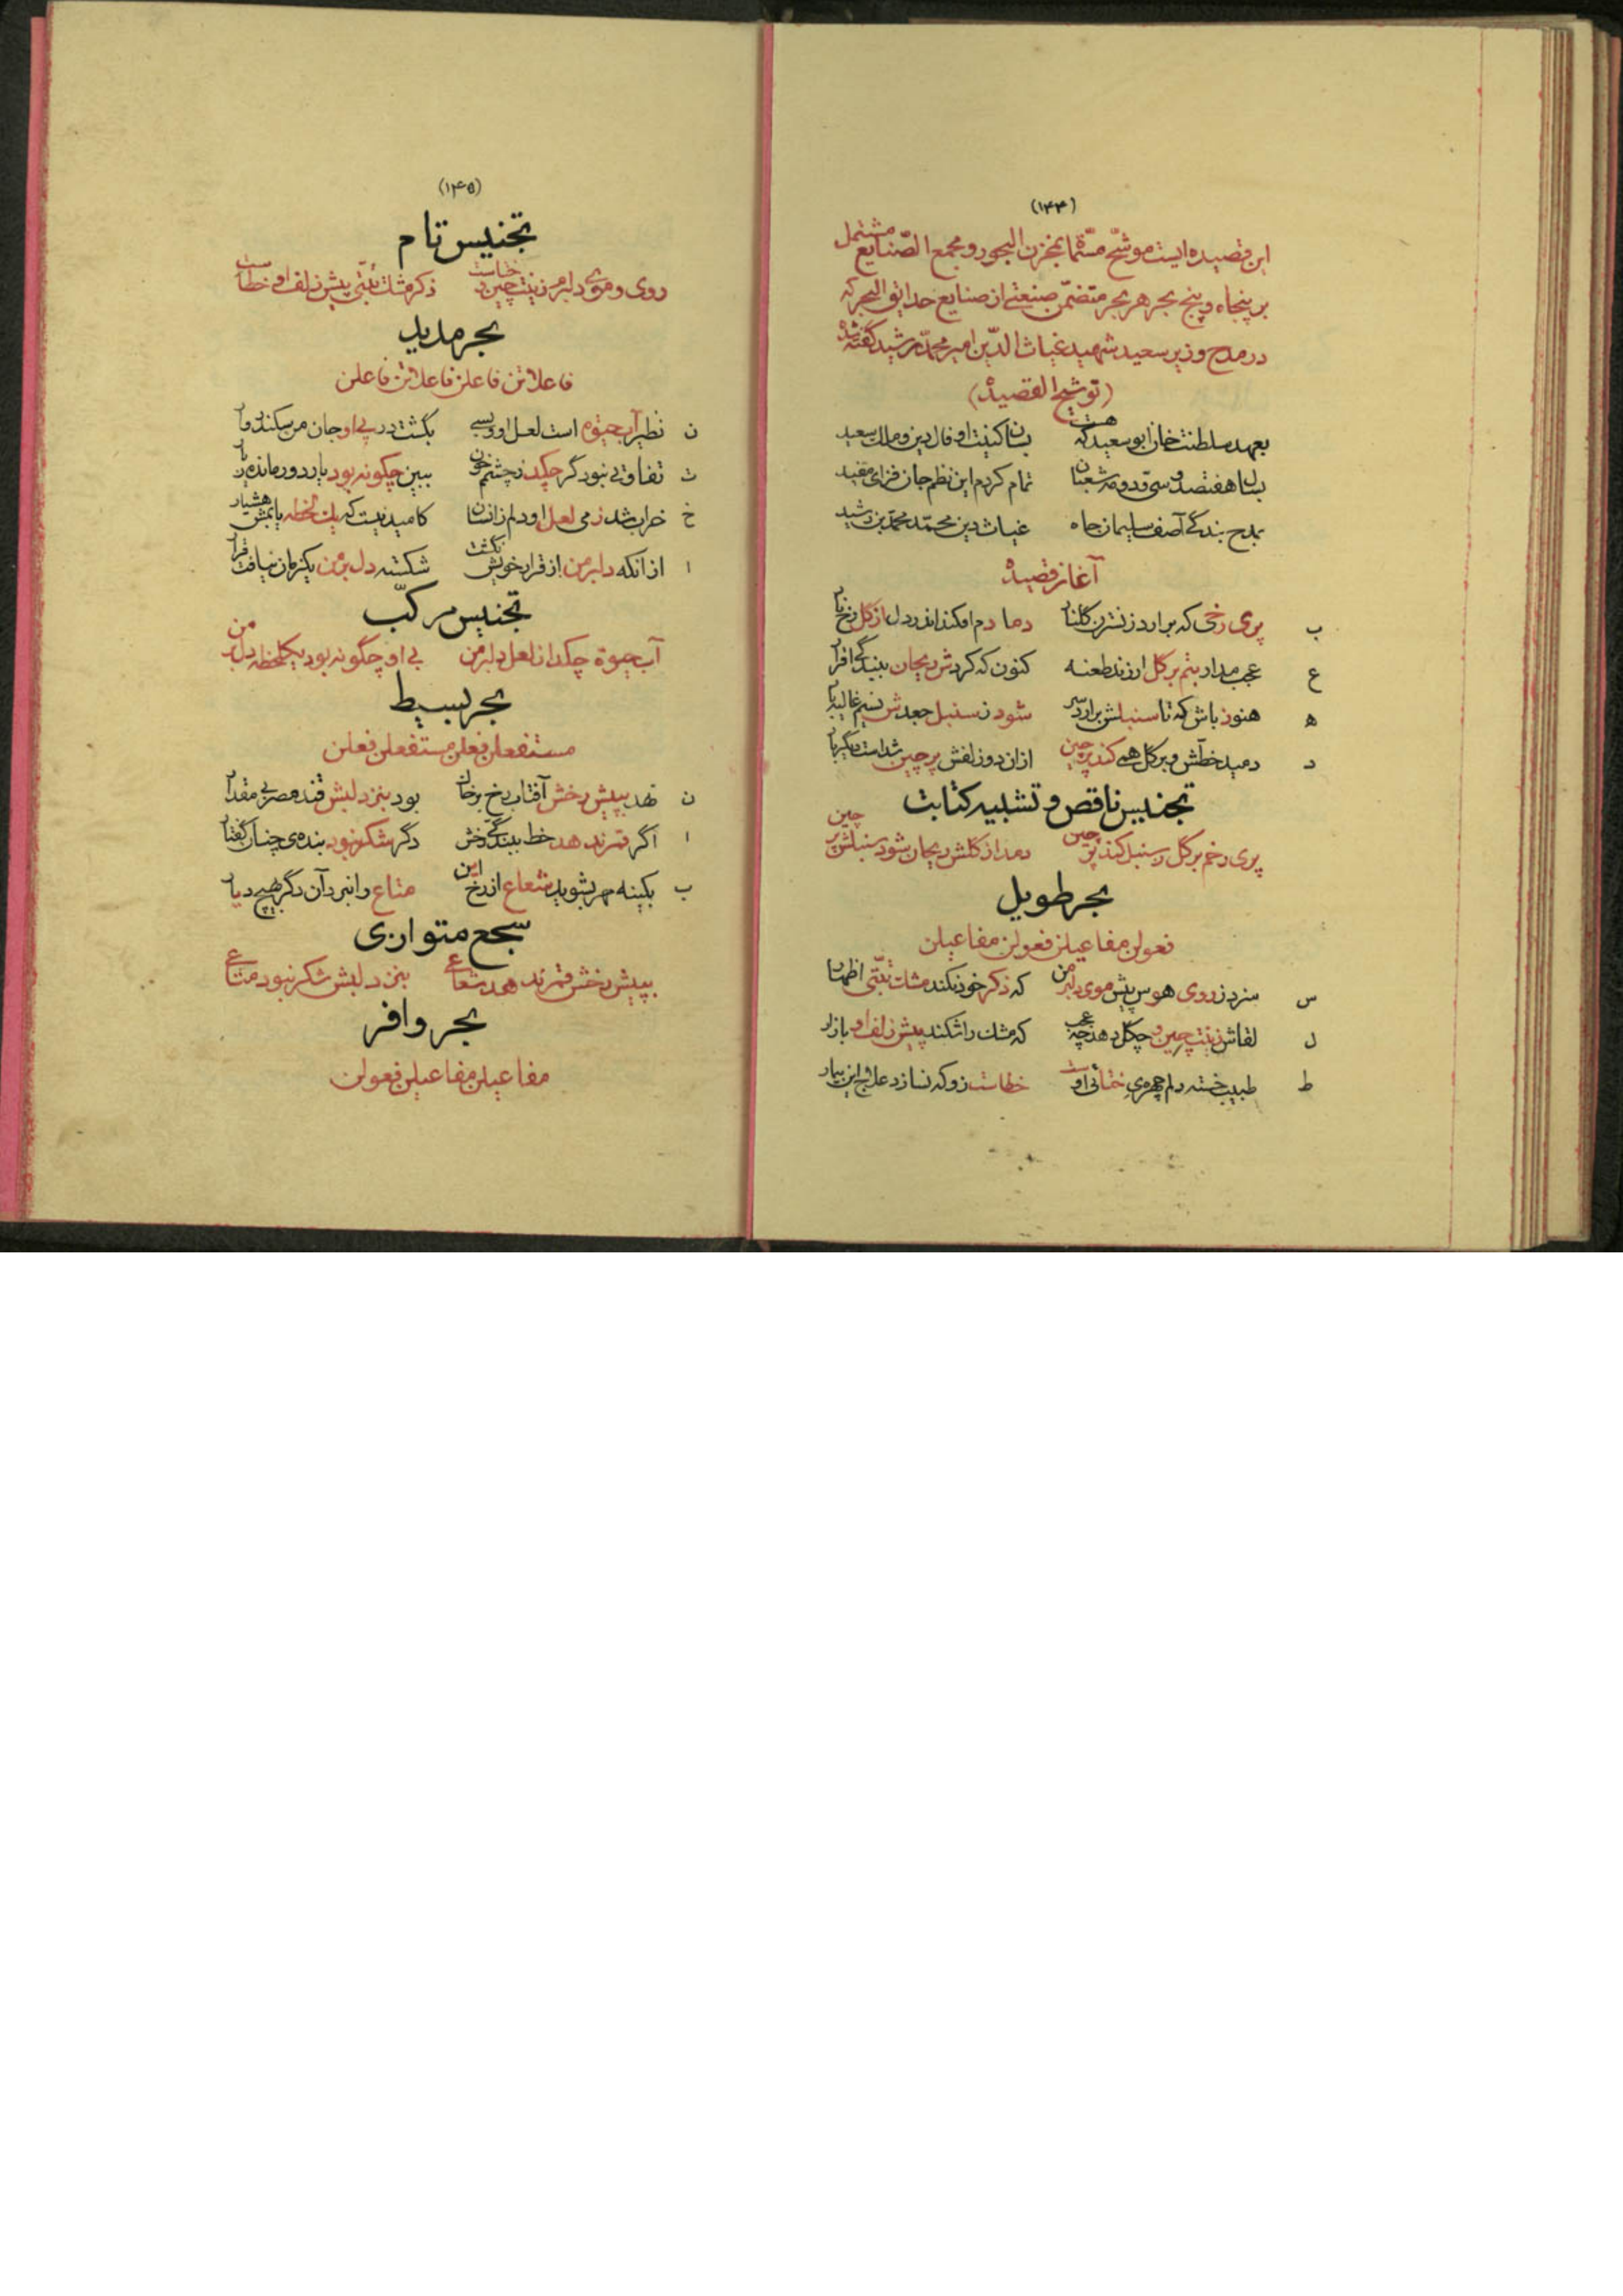 (۱۴۴)
این قصیده‌ایست موشّح مسمّا بمخزن البحور و مجمع الصّنایع مشتمل
بر پنجاه و پنج بحر هر بحر متضمّن صنعتی از صنایع حدایق السحر که
در مدح وزیر سعید شهید غیاث الدّین امیر محمّد رشید گفته شده
(توشیح القصیدة)
بعهد سلطنت خان ابو سعید که هست بسان کنیت او فال دین و ملک سعید
بسال هفتصد و سی و دو مه شعبان تمام کردم این نظم جان فزای مفید
بمدح بندگی آصف سلیمان جاه غیاث دین محمد محمد بن رشید
آغاز قصیده
ب پری رخی که برارد ز نسترن گلنار دمادم افکند اندر دل از گل رخ نار
ع عجب مدار بتم بر گل ار زند طعنه کنون که کردش ریحان ببندگی اقرار
ه هنوز باش که تا سنبلش برارد سر شود ز سنبل جعدش نسیم غالیه بار
د دمید خطّش و بر گل همی کند پرچین ازان دو زلفش پرچین شداست دیگر بار
تجنیس ناقص و تشبیه کنایت
پری رخم بر گل ز سنبل کند پرچین دمد از گلش ریحان شود سنبلش پر چین
بحر طویل
فعولن مفاعیلن فعولن مفاعیلن
س سزد ز روی هوس پیش موی دلبر من که ذکر خود نکند مشک تبّتی اظهار
ل لقاش زینت چین و چگل دهد چه عجب که مشک را شکند پیش زلف او بازار
ط طبیب خسته دلم چهره‌ی ختائی اوست خطاست زو که نسازد علاج این بیمار
(۱۴۵)
تجنیس تام
روی و موی دلبر من زینت چین و ختاست ذکر مشک تبّتی پیش زلف او خطاست
بحر مدید
فاعلاتن فاعلن فاعلاتن فاعلن
ن نظیر آب حیوة است لعل او و بسی بگشت در پی او جان من سکندر وار
ت تفاوتی نبود گر چکد ز چشمم خون ببین چگونه بود یار دور مانده ز یار
خ خراب شد ز می لعل او دلم زانسان کامید نیست که یک لحظه یابمش هشیار
ا از آنکه دلبر من از قرار خویش بگشت شکسته دل بر من یکزمان نیافت قرار
تجنیس مرکّب
آب حیوة چکد از لعل دلبر من بی او چگونه بود یکلحظه دل بر من
بحر بسیط
مستفعلن فعلن مستفعلن فعلن
ن نهد بپیش رخش آفتاب رخ بر خاک بود بنزد لبش قند مصر بی مقدار
ا اگر قمر ندهد خط ببندگی رخش دگر شکر نبود بنده‌ی چنان گفتار
ب بکینه مهر بشوید شعاع از رخ این متاع را نبرد آن دگر بهیچ دیار
سجع متوازی
بپیش رخش قمر ندهد شعاع بنزد لبش شکر نبود متاع
بحر وافر
مفاعیلن مفاعیلن فعولن